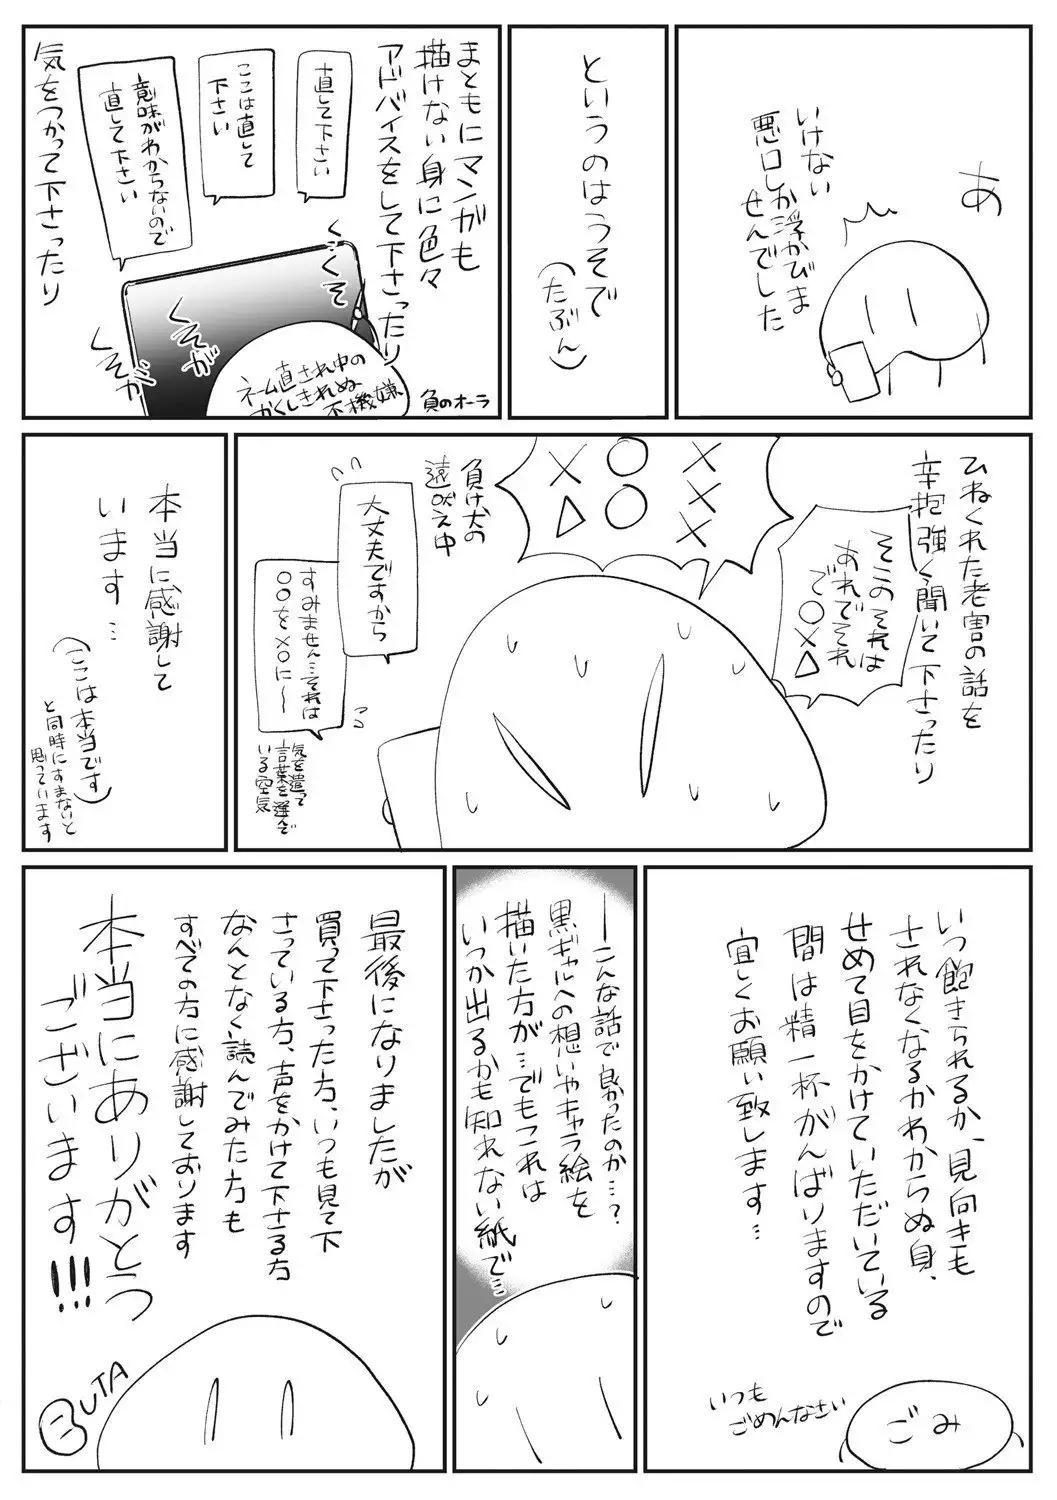 あ
いけない
悪口しか浮かびま
せんでした
というのはうそで
(たぶん)
まともにマンガも
描けない身に色々
アドバイスをして下さったり
直して下さい
ここは直して
下さい
意味がわからないので
直して下さい
気をつかって下さったり
くそぐぞ
くそが
くそが
ネーム直され中の
かくしきれぬ
不機嫌
負のオーラ
ひねくれた老害の話を
辛抱強く聞いて下さったり
そこのそれは
あれでそれ
で○×△
×××
○○
×△
負け犬の
遠吠え中
大丈夫ですから
すみません…それは
○○を×○に〜
気を遣って
言葉を選んで
いる空気
本当に感謝して
います…
(ここは本当です)
と同時にすまないと
思っています
いつ飽きられるか、見向きも
されなくなるかわからぬ身、
せめて目をかけていただいている
間は精一杯がんばりますので
宜しくお願い致します…
いつも
ごめんなさい
ごみ
―こんな話で良かったのか…?
黒ギャルへの想いやキャラ絵を
描いた方が…でもこれは
いつか出るかも知れない紙で…
最後になりましたが
買って下さった方、いつも見て下
さっている方、声をかけて下さる方
なんとなく読んでみた方も
すべての方に感謝しております
本当にありがとう
ございます!!!
BUTA